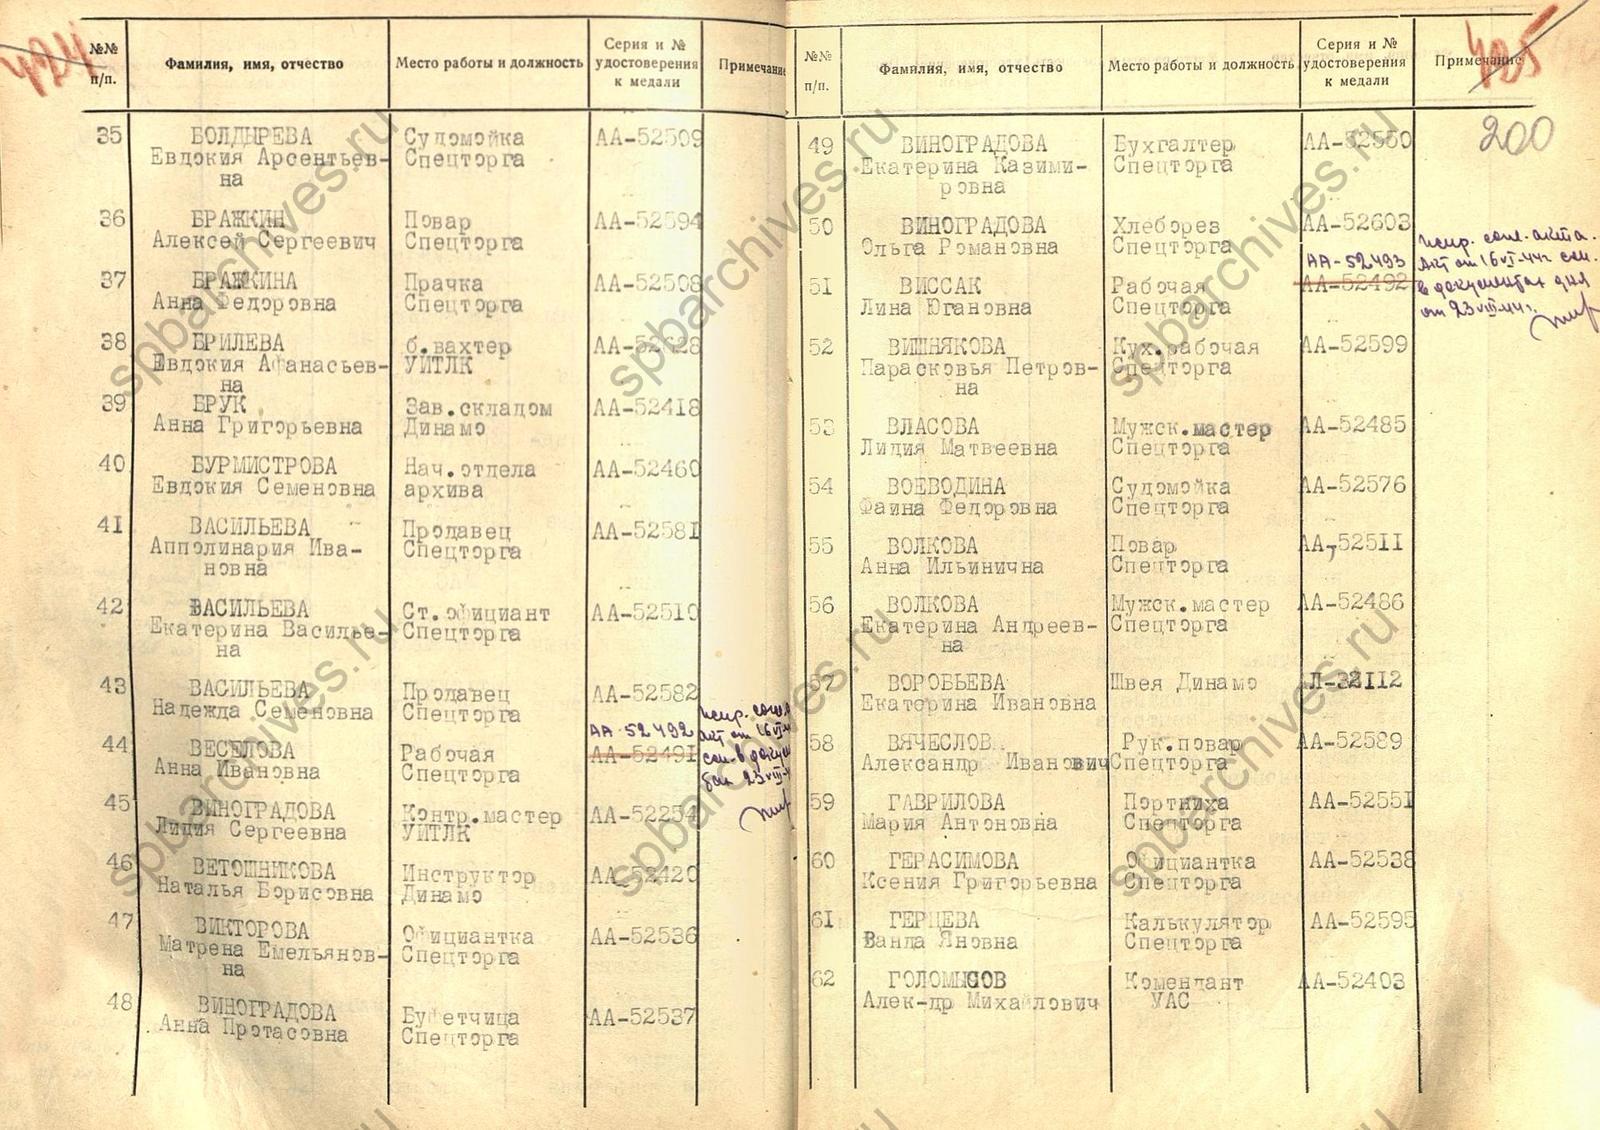 424
№№ п/п.
Фамилия, имя, отчество
Место работы и должность
Серия и № удостоверения к медали
Примечание
35
БОЛДЫРЕВА
Евдокия Арсентьев-
на
Судомойка
Спецторга
АА-52509
36
БРАЖКИН
Алексей Сергеевич
Повар
Спецторга
АА-52594
37
БРАЖКИНА
Анна Федоровна
Прачка
Спецторга
АА-52508
38
БРИЛЕВА
Евдокия Афанасьев-
на
б.вахтер
УИТЛК
39
БРУК
Анна Григорьевна
Зав.складом
Динамо
АА-52418
40
БУРМИСТРОВА
Евдокия Семеновна
Нач.отдела
архива
АА-52460
41
ВАСИЛЬЕВА
Апполинария Ива-
новна
Продавец
Спецторга
АА-52581
42
ВАСИЛЬЕВА
Екатерина Василье-
на
Ст.официант
Спецторга
АА-52510
43
ВАСИЛЬЕВА
Надежда Семеновна
Продавец
Спецторга
АА-52582
44
ВЕСЕЛОВА
Анна Ивановна
Рабочая
Спецторга
АА-52492
АА-52491
45
ВИНОГРАДОВА
Лидия Сергеевна
Контр.мастер
УИТЛК
АА-52254
46
ВЕТОШНИКОВА
Наталья Борисовна
Инструктор
Динамо
АА-52420
47
ВИКТОРОВА
Матрена Емельянов-
на
Официантка
Спецторга
АА-52536
48
ВИНОГРАДОВА
Анна Протасовна
Буфетчица
Спецторга
АА-52537
405
200
№№ п/п.
Фамилия, имя, отчество
Место работы и должность
Серия и № удостоверения к медали
Примечание
49
ВИНОГРАДОВА
Екатерина Казими-
ровна
Бухгалтер
Спецторга
АА-52550
50
ВИНОГРАДОВА
Ольга Романовна
Хлеборез
Спецторга
АА-52603
51
ВИССАК
Лина Югановна
Рабочая
Спецторга
АА-52493
АА-52492
испр. согл. акта.
Акт от 16 VI-44г
в документах для
от 23 VIII-44г.
52
ВИШНЯКОВА
Парасковья Петров-
на
Кух.рабочая
Спецторга
АА-52599
53
ВЛАСОВА
Лидия Матвеевна
Мужск.мастер
Спецторга
АА-52485
54
ВОЕВОДИНА
Фаина Федоровна
Судомойка
Спецторга
АА-52576
55
ВОЛКОВА
Анна Ильинична
Повар
Спецторга
АА-52511
56
ВОЛКОВА
Екатерина Андреев-
на
Мужск.мастер
Спецторга
АА-52486
57
ВОРОБЬЕВА
Екатерина Ивановна
Швея Динамо
58
ВЯЧЕСЛОВ
Александр Иванович
Рук.повар
Спецторга
АА-52589
59
ГАВРИЛОВА
Мария Антоновна
Портниха
Спецторга
АА-52551
60
ГЕРАСИМОВА
Ксения Григорьевна
Официантка
Спецторга
АА-52538
61
ГЕРЦЕВА
Ванда Яновна
Калькулятор
Спецторга
АА-52595
62
ГОЛОМЫСОВ
Алек-др Михайлович
Комендант
УАС
АА-52403
spbarchives.ru
spbarchives.ru
spbarchives.ru
spbarchives.ru
spbarchives.ru
spbarchives.ru